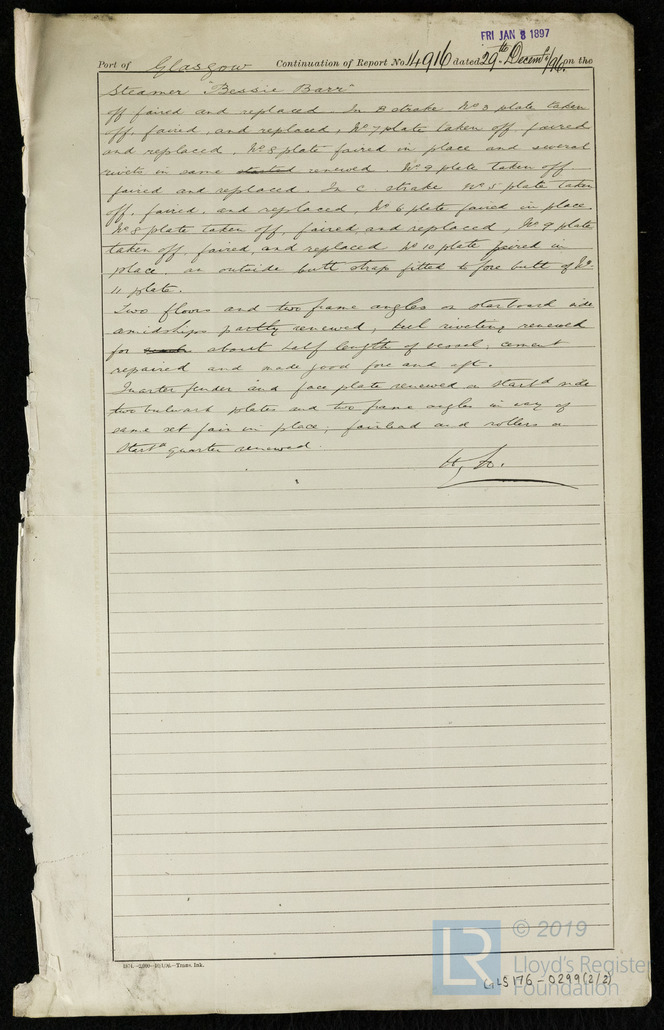 FRI JAN 8 1897
Port of Glasgow Continuation of Report No 14916 dated 29th Decemr/96 on the
Steamer "Bessie Barr"
off faired and replaced. In B strake No 3 plate taken
off, faired, and replaced, No 7 plate taken off faired
and replaced, No 8 plate faired in place and several
rivets in same started renewed. No 9 plate taken off
faired and replaced. In C strake No 5 plate taken
off, faired, and replaced, No 6 plate faired in place
No 8 plate taken off, faired, and replaced, No 9 plate
taken off, faired, and replaced No 10 plate faired in
place. an outside butt strap fitted to fore butt of No
11 plate.
Two floors and two frame angles on starboard side
amidships partly renewed, keel riveting renewed
for about half length of vessel, cement
repaired and made good fore and aft.
Quarter fender and face plate renewed on Starbd side
two bulwark plates and two frame angles in way of
same set fair in place, fairlead and rollers on
Starbd quarter renewed.
1874.-2,000-10/1/96.-Trans. Ink.
LR © 2019
Lloyd's Register
Foundation
GLS176-0299(2/2)